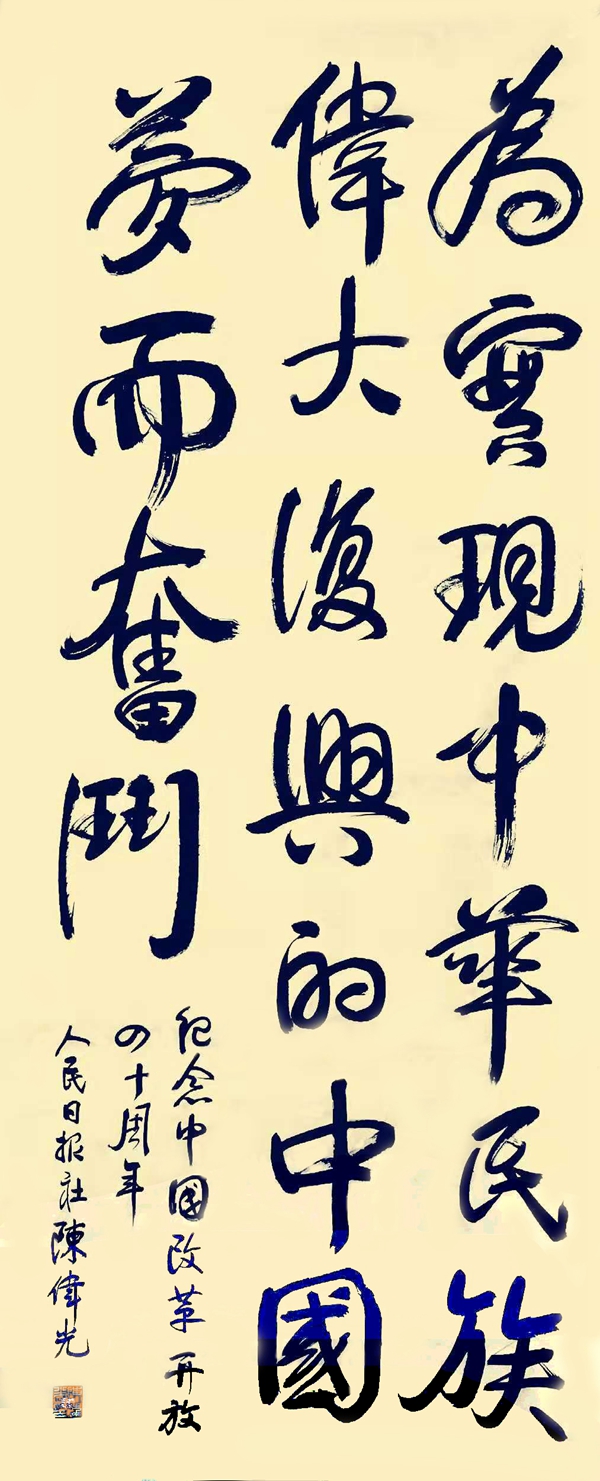 為實現中華民族
偉大復興的中國
夢而奮鬥
紀念中國改革开放
四十周年
人民日报社陳偉光